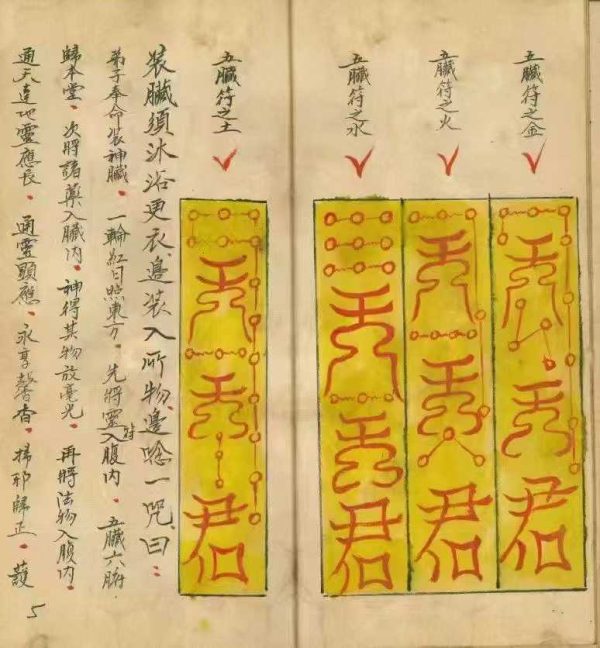 五臟符之金
君
五臟符之火
君
五臟符之水
君
五臟符之土
君
装臟須沐浴更衣、邊装入所物、邊唸一咒、曰：
弟子奉命装神臟。一輪紅日照東方。先將靈符入腹内。五臟六腑.
歸本堂。次將諸藥入臟内。神得其物放毫光。再將法物入腹内。
通天達地靈應長。通靈顯應。永享馨香。掃邪歸正。護
5